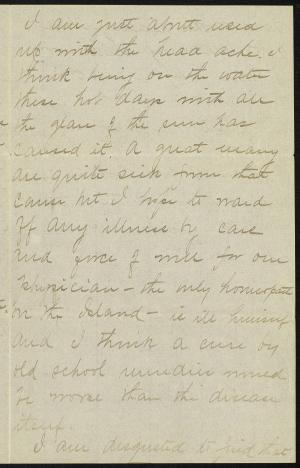 I am just about used
up with the head ache. I
think being on the water
these hot days with all
the glare of the sun has
caused it. A great many
are quite sick from that
cause but I hope to ward
off any illness by care
and force of will for our
physician - the only homeopath
on the Island - is ill himself
and I think a cure by
old school remedies would
be worse than the disease
itself.
I am disgusted to find that